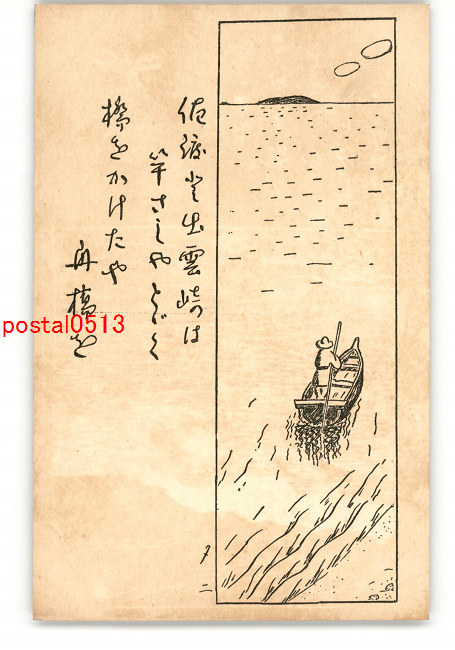 佐渡と出雲崎は
竿さしやとゞく
橋をかけたや
舟橋を
postal0513